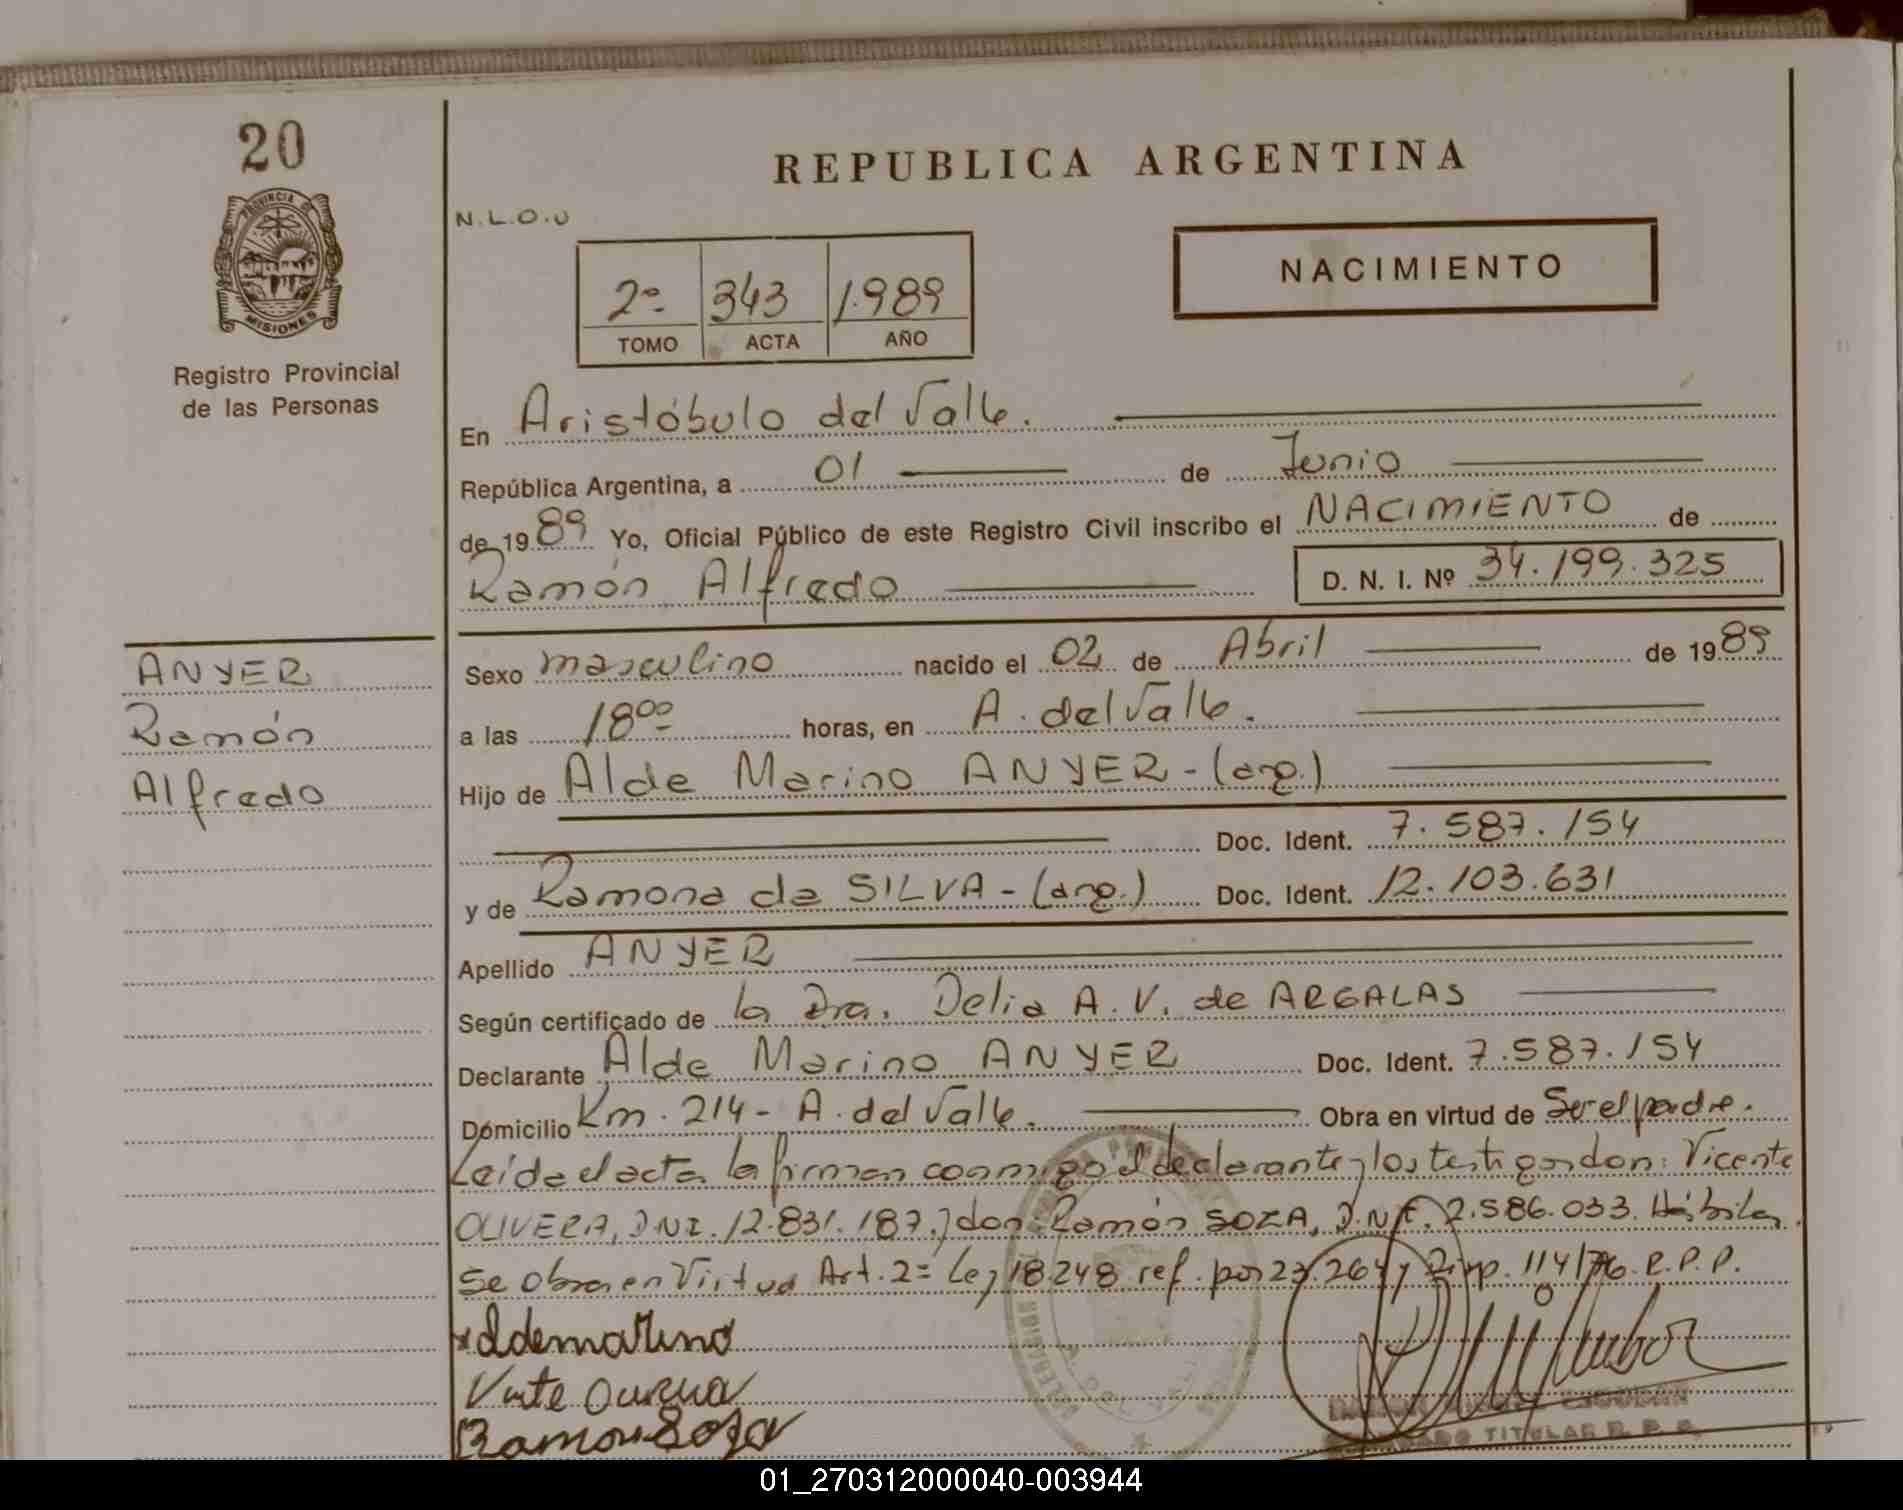 20
PROVINCIA DE
MISIONES
Registro Provincial
de las Personas
ANYER
Ramón
Alfredo
REPUBLICA ARGENTINA
N.L.O.U
NACIMIENTO
2º 343 1.989
TOMO ACTA AÑO
En Aristóbulo del Valle.
República Argentina, a 01 de Junio
de 1989 Yo, Oficial Público de este Registro Civil inscribo el NACIMIENTO de
Ramón Alfredo D. N. I. Nº 34.199.325
Sexo masculino nacido el 02 de Abril de 1989
a las 18ºº horas, en A. del Valle.
Hijo de Alde Marino ANYER - (arg.)
Doc. Ident. 7.587.154
y de Ramona da SILVA - (arg.) Doc. Ident. 12.103.631
Apellido ANYER
Según certificado de la Dra. Delia A. V. de ARGALAS
Declarante Alde Marino ANYER Doc. Ident. 7.587.154
Domicilio Km. 214 - A. del Valle. Obra en virtud de Ser el padre.
Leída el acta la firman conmigo el declarante y los testigos don: Vicente
OLIVERA, DNI. 12.831.187. y don: Ramón SOZA, D.N.I. 2.586.033. Hábiles.
Se obra en Virtud Art. 2= Ley 18.248 ref. por 23.264 y Disp. 114/76. R.P.P.
Aldemarino
Ramon Soza
TITULAR R. P. P.
01_270312000040-003944